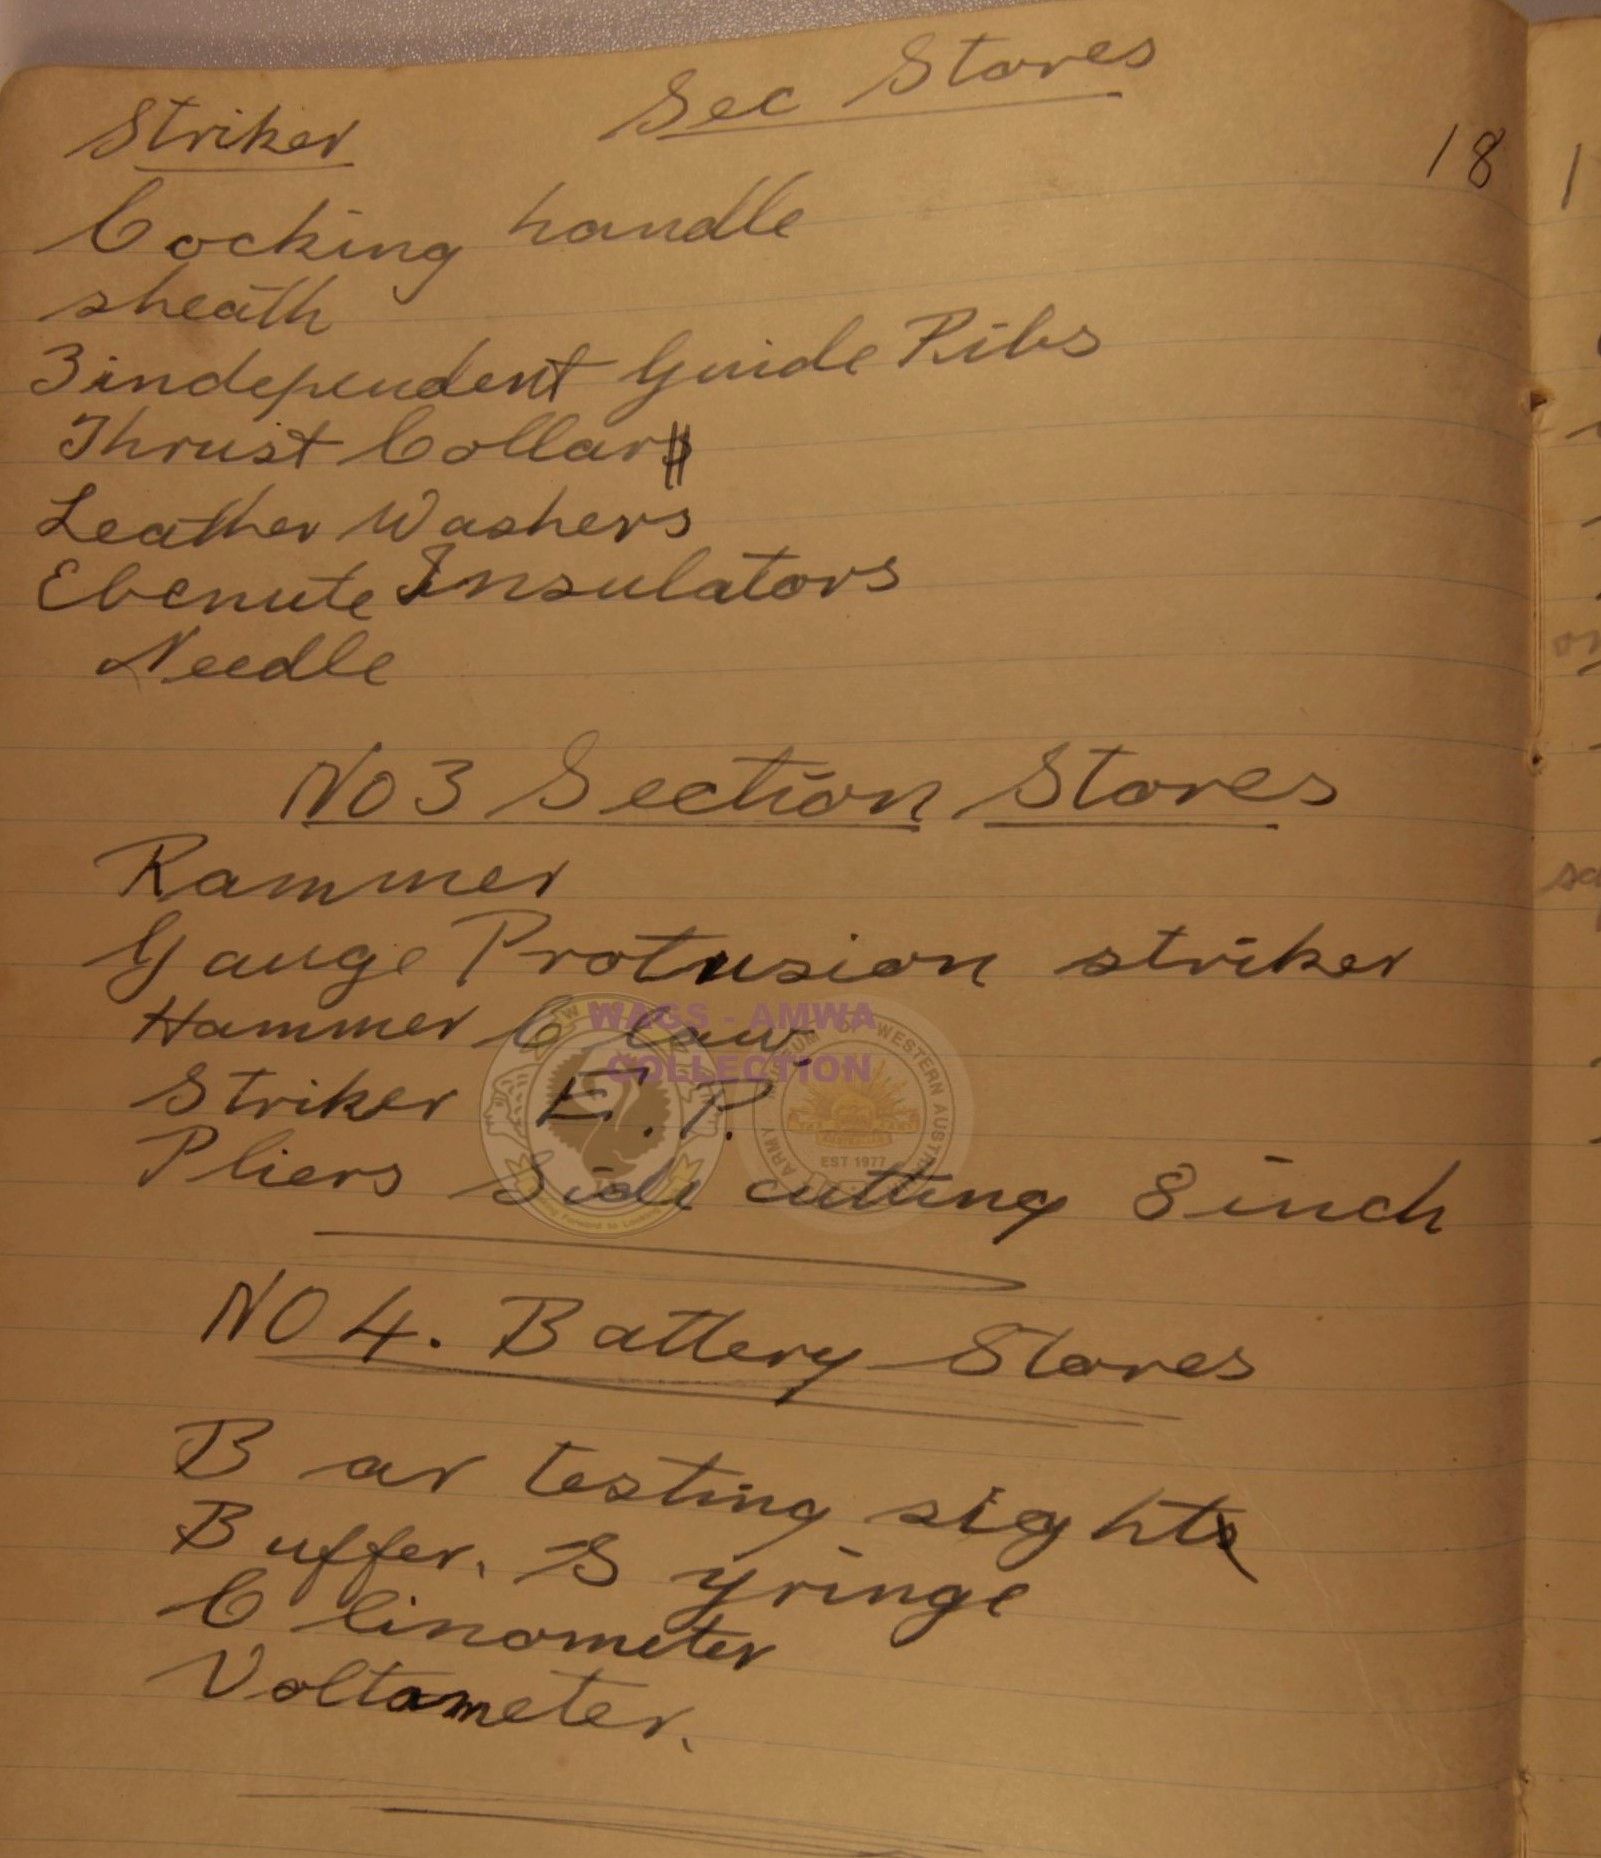 Sec Stores
18
Striker
Cocking handle
sheath
3 independent Guide Ribs
Thrust Collar
Leather Washers
Ebenute Insulators
Needle
No 3 Section Stores
Rammer
Gauge Protusion striker
Hammer Claw
Striker E.P.
Pliers Side cutting 8 inch
NO 4. Battery Stores
Bar testing sight
Buffer. Syringe
Clinometer
Voltameter.
WAGS - AMWA
COLLECTION
EST 1977